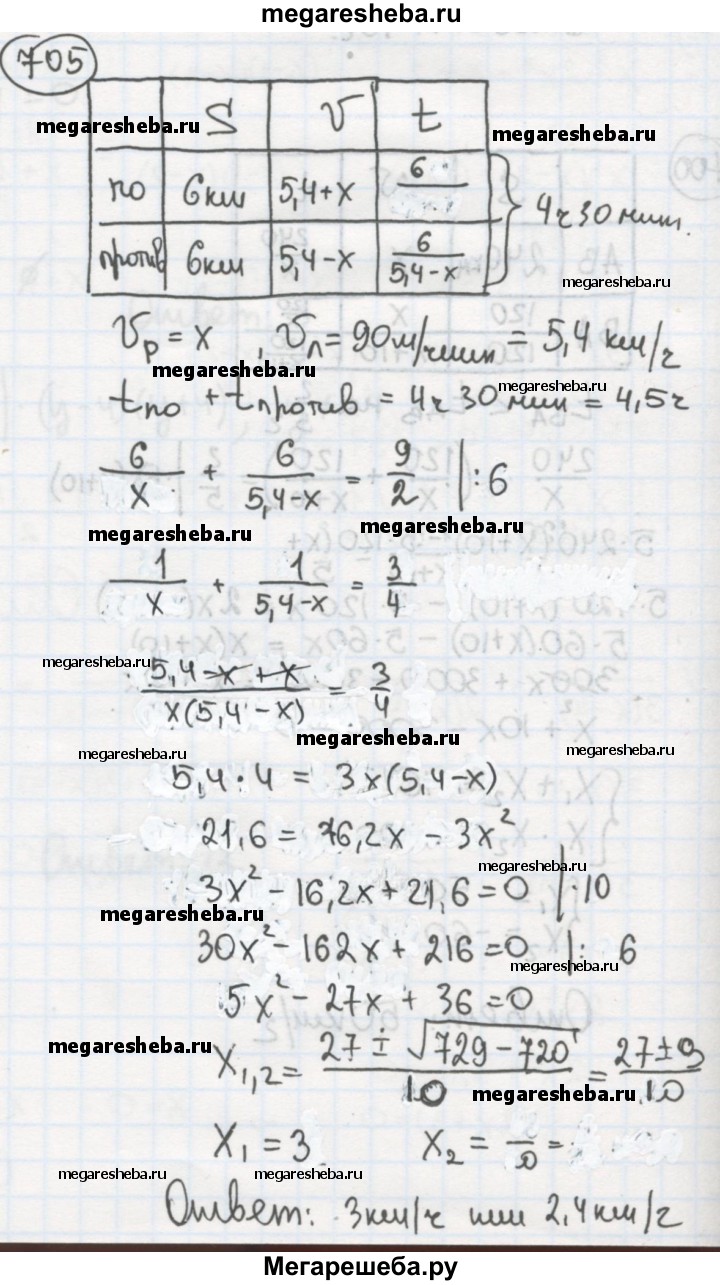 megaresheba.ru
705
S V t
megaresheba.ru megaresheba.ru
по 6км 5,4+x 6/
} 4ч30мин.
против 6км 5,4-x 6/(5,4-x)
megaresheba.ru
Vр = x , Vл = 90м/мин = 5,4 км/ч
megaresheba.ru
tпо + tпротив = 4ч 30мин = 4,5ч
megaresheba.ru
6/x + 6/(5,4-x) = 9/2 |:6
megaresheba.ru megaresheba.ru
1/x + 1/(5,4-x) = 3/4
megaresheba.ru
(5,4-x+x)/(x(5,4-x)) = 3/4
megaresheba.ru megaresheba.ru megaresheba.ru
5,4·4 = 3x(5,4-x)
21,6 = 16,2x - 3x²
megaresheba.ru
3x² - 16,2x + 21,6 = 0 |·10
megaresheba.ru
30x² - 162x + 216 = 0 |: 6
megaresheba.ru
5x² - 27x + 36 = 0
megaresheba.ru
X1,2 = (27 ± √(729-720))/10 = (27±3)/10
megaresheba.ru
X1 = 3 X2 = =
megaresheba.ru megaresheba.ru megaresheba.ru
Ответ: 3км/ч или 2,4км/ч
Мегарешеба.ру